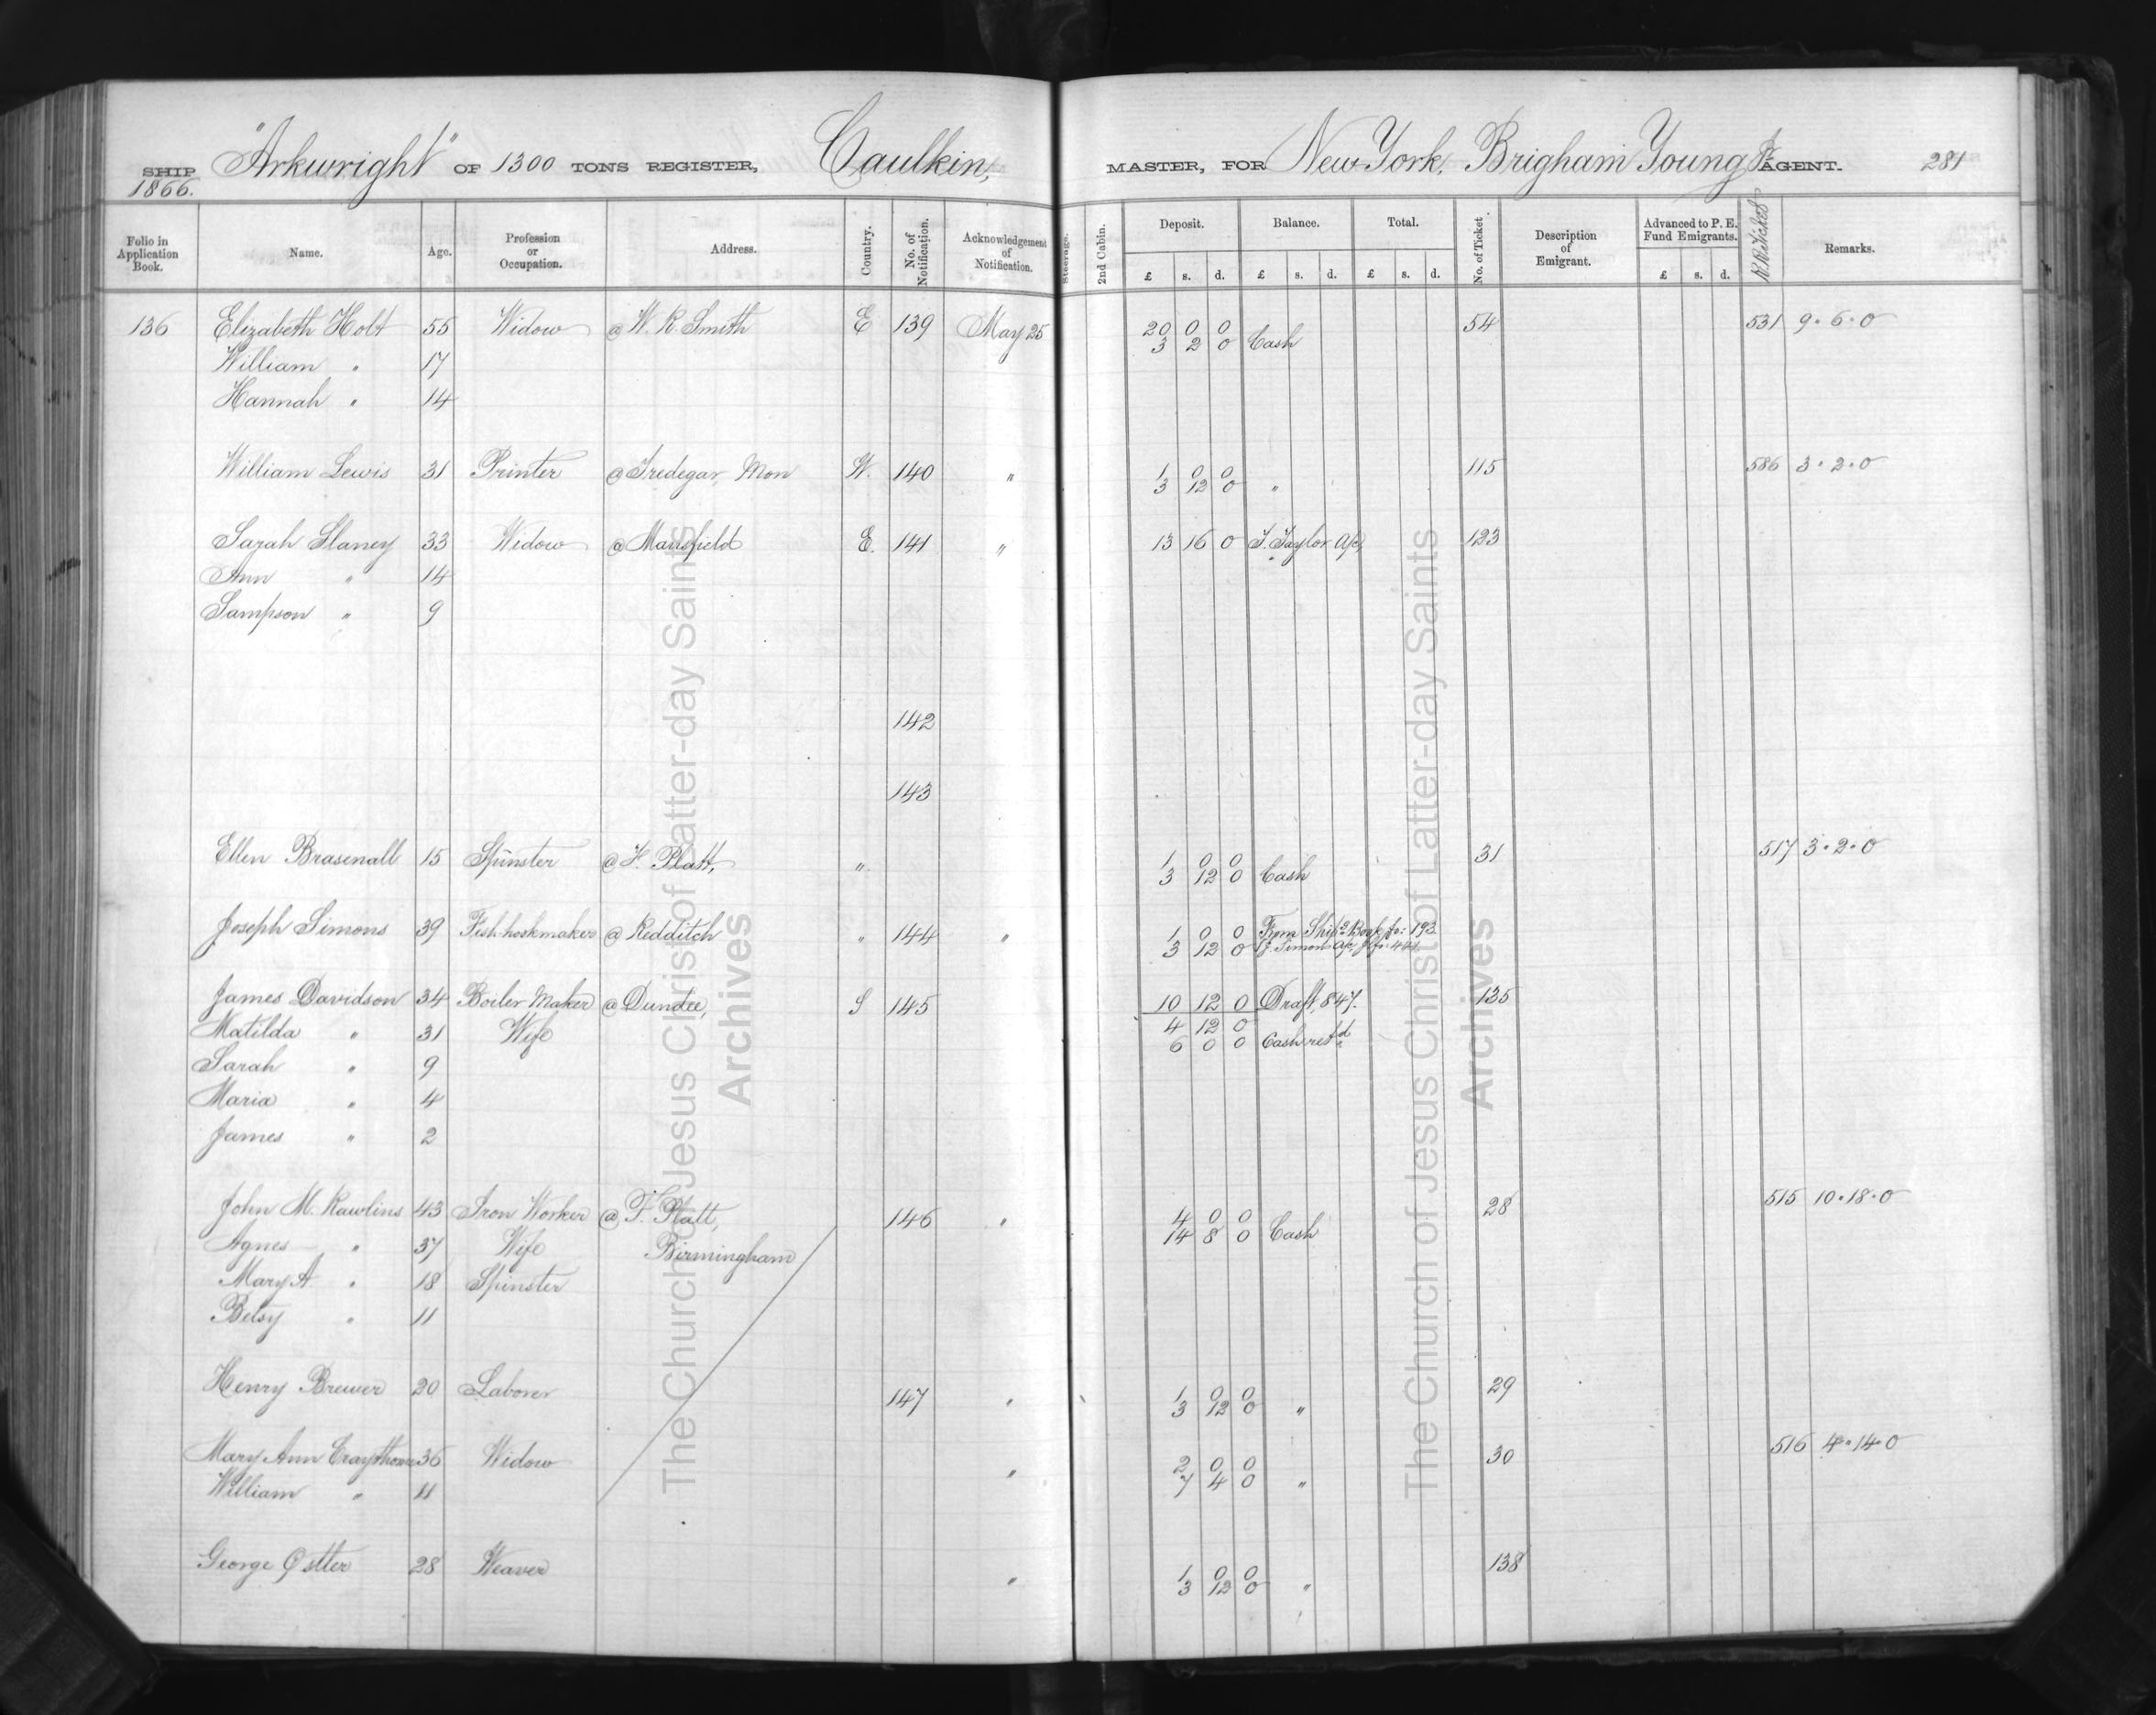 SHIP "Arkwright" OF 1300 TONS REGISTER, Caulkin, MASTER, FOR New York. Brigham Young Jr AGENT. 281
1866.
Folio in Application Book. Name. Age. Profession or Occupation. Address. Country. No. of Notification. Acknowledgement of Notification. Steerage. 2nd Cabin. Deposit. £ s. d. Balance. £ s. d. Total. £ s. d. No. of Ticket. Description of Emigrant. Advanced to P. E. Fund Emigrants. £ s. d. R.R. Tickets Remarks.
136 Elizabeth Holt 55 Widow @ W. R. Smith E 139 May 25 20 0 0 54 531 9.6.0
3 2 0 Cash
William " 17
Hannah " 14
William Lewis 31 Printer @ Tredegar, Mon W. 140 " 1 0 0 115 586 3.2.0
3 12 0 "
Sarah Slaney 33 Widow @ Mansfield E. 141 " 13 16 0 T. Taylor a/c, 123
Ann " 14
Sampson " 9
142
143
Ellen Brasenall 15 Spinster @ F. Platt, " 1 0 0 31 517 3.2.0
3 12 0 Cash
Joseph Simons 39 Fish-hookmaker @ Redditch " 144 " 1 0 0 From Ship's Book fo: 193
3 12 0 J. Simon a/c
James Davidson 34 Boiler Maker @ Dundee, S 145 10 12 0 Draft, 847. 135
Matilda " 31 Wife 4 12 0
6 0 0 Cash retd
Sarah " 9
Maria " 4
James " 2
John M. Rawlins 43 Iron Worker @ F. Platt, 146 " 4 0 0 28 515 10.18.0
14 8 0 Cash
Agnes " 37 Wife Birmingham
Mary A " 18 Spinster
Betsy " 11
Henry Brewer 20 Laborer 147 " 1 0 0 29
3 12 0 "
Mary Ann Craythorne 36 Widow " 2 0 0 30 516 4.14.0
William " 11 7 4 0 "
George Ostler 28 Weaver " 1 0 0 138
3 12 0 "
The Church of Jesus Christ of Latter-day Saints
Archives
The Church of Jesus Christ of Latter-day Saints
Archives